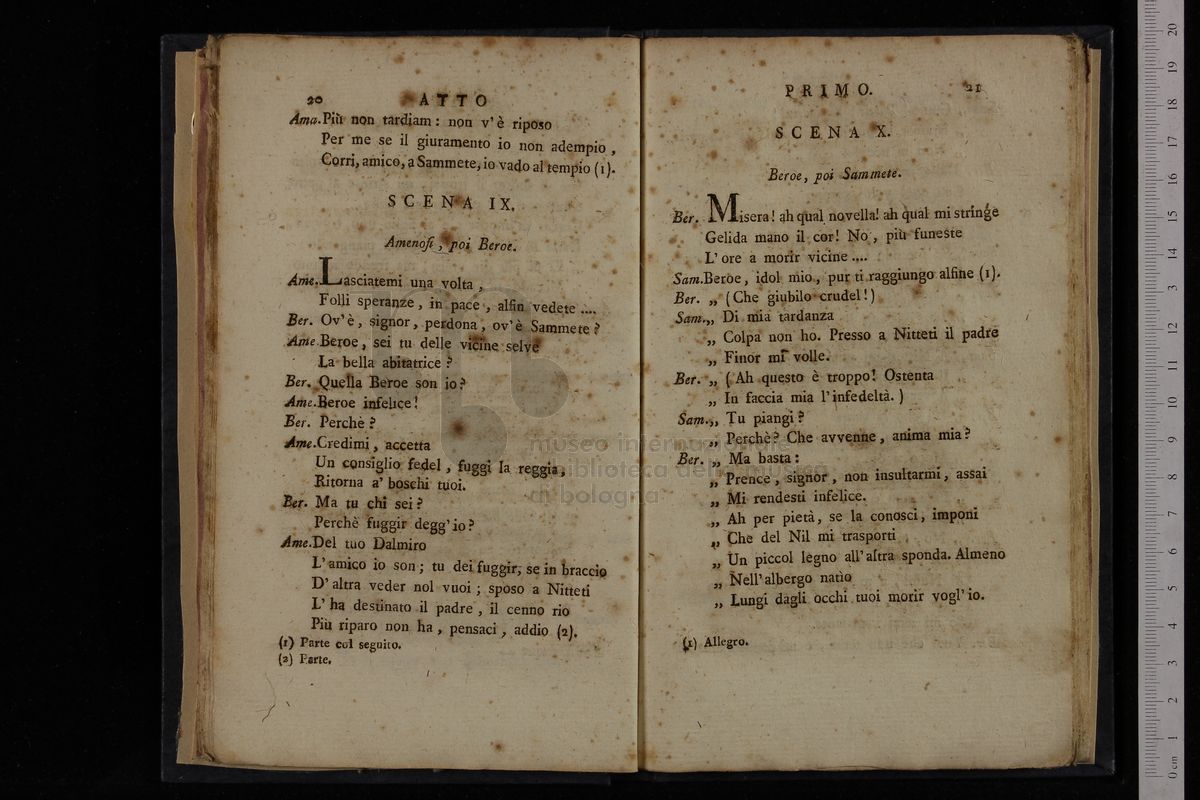 20 ATTO
Ama. Più non tardiam: non v'è riposo
Per me se il giuramento io non adempio,
Corri, amico, a Sammete, io vado al tempio (1).
SCENA IX.
Amenofi, poi Beroe.
Ame. Lasciatemi una volta,
Folli speranze, in pace, alfin vedete ....
Ber. Ov'è, signor, perdona, ov'è Sammete?
Ame. Beroe, sei tu delle vicine selve
La bella abitatrice?
Ber. Quella Beroe son io?
Ame. Beroe infelice!
Ber. Perchè?
Ame. Credimi, accetta
Un consiglio fedel, fuggi la reggia,
Ritorna a' boschi tuoi.
Ber. Ma tu chi sei?
Perchè fuggir degg'io?
Ame. Del tuo Dalmiro
L'amico io son; tu dei fuggir, se in braccio
D'altra veder nol vuoi; sposo a Nitteti
L'ha destinato il padre, il cenno rio
Più riparo non ha, pensaci, addio (2).
(1) Parte col seguito.
(2) Parte.
PRIMO. 21
SCENA X.
Beroe, poi Sammete.
Ber. Misera! ah qual novella! ah qual mi stringe
Gelida mano il cor! No, più funeste
L'ore a morir vicine ....
Sam. Beroe, idol mio, pur ti raggiungo alfine (1).
Ber. „ (Che giubilo crudel!)
Sam. „ Di mia tardanza
„ Colpa non ho. Presso a Nitteti il padre
„ Finor mi volle.
Ber. „ (Ah questo è troppo! Ostenta
„ In faccia mia l'infedeltà.)
Sam. „ Tu piangi?
„ Perchè? Che avvenne, anima mia?
Ber. „ Ma basta:
„ Prence, signor, non insultarmi, assai
„ Mi rendesti infelice.
„ Ah per pietà, se la conosci, imponi
„ Che del Nil mi trasporti
„ Un piccol legno all'altra sponda. Almeno
„ Nell'albergo natìo
„ Lungi dagli occhi tuoi morir vogl'io.
(1) Allegro.
museo internazionale
e biblioteca della musica
di bologna
0 cm 1 2 3 4 5 6 7 8 9 10 11 12 13 14 15 16 17 18 19 20